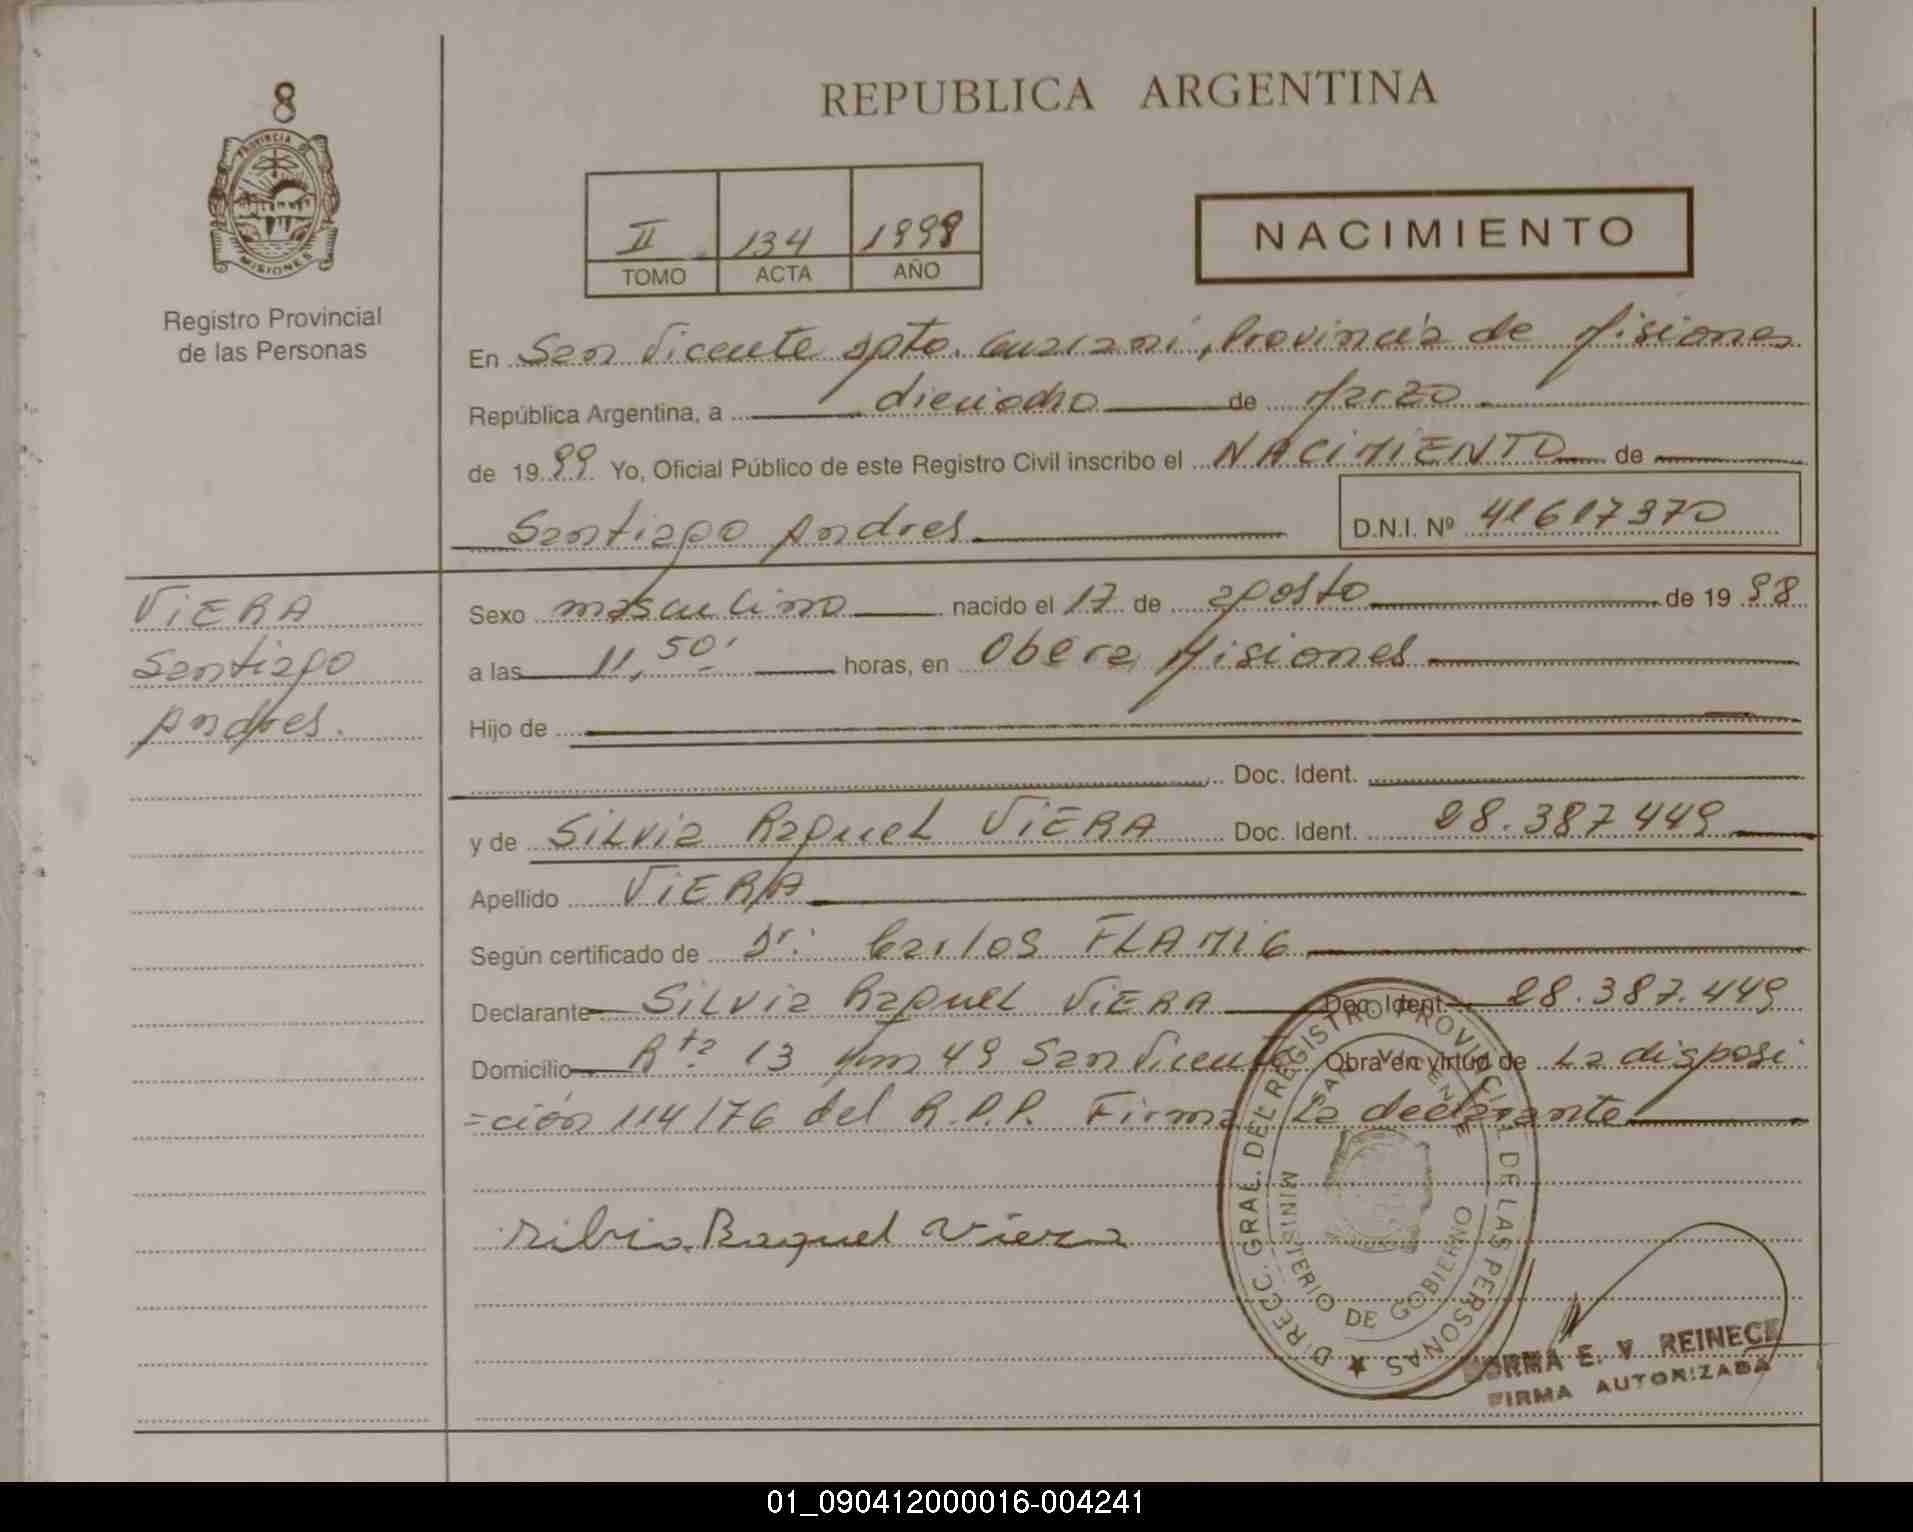 8
PROVINCIA DE
MISIONES
Registro Provincial
de las Personas
REPUBLICA ARGENTINA
II 134 1999
TOMO ACTA AÑO
NACIMIENTO
En San Vicente Dpto. Guarani, Provincia de Misiones
República Argentina, a dieciocho de Marzo
de 1999 Yo, Oficial Público de este Registro Civil inscribo el NACIMIENTO de
Santiago Andres
D.N.I. Nº 41617370
VIERA
Santiago
Andres.
Sexo masculino nacido el 17 de agosto de 1998
a las 11,50' horas, en Obera Misiones
Hijo de
Doc. Ident.
y de Silvia Raquel VIERA Doc. Ident. 28.387449
Apellido VIERA
Según certificado de Dr: Carlos FLAMIG
Declarante Silvia Raquel VIERA Doc. Ident. 28.387.449
Domicilio Rta 13 Km 49 San Vicente Obra en virtud de La disposi
=ción 114/76 del R.P.P. Firma La declarante
Silvia Raquel Viera
DIRECC. GRAL. DEL REGISTRO PROVINCIAL DE LAS PERSONAS
SAN VICENTE
MINISTERIO DE GOBIERNO
NORMA E. V. REINECK
FIRMA AUTORIZADA
01_090412000016-004241